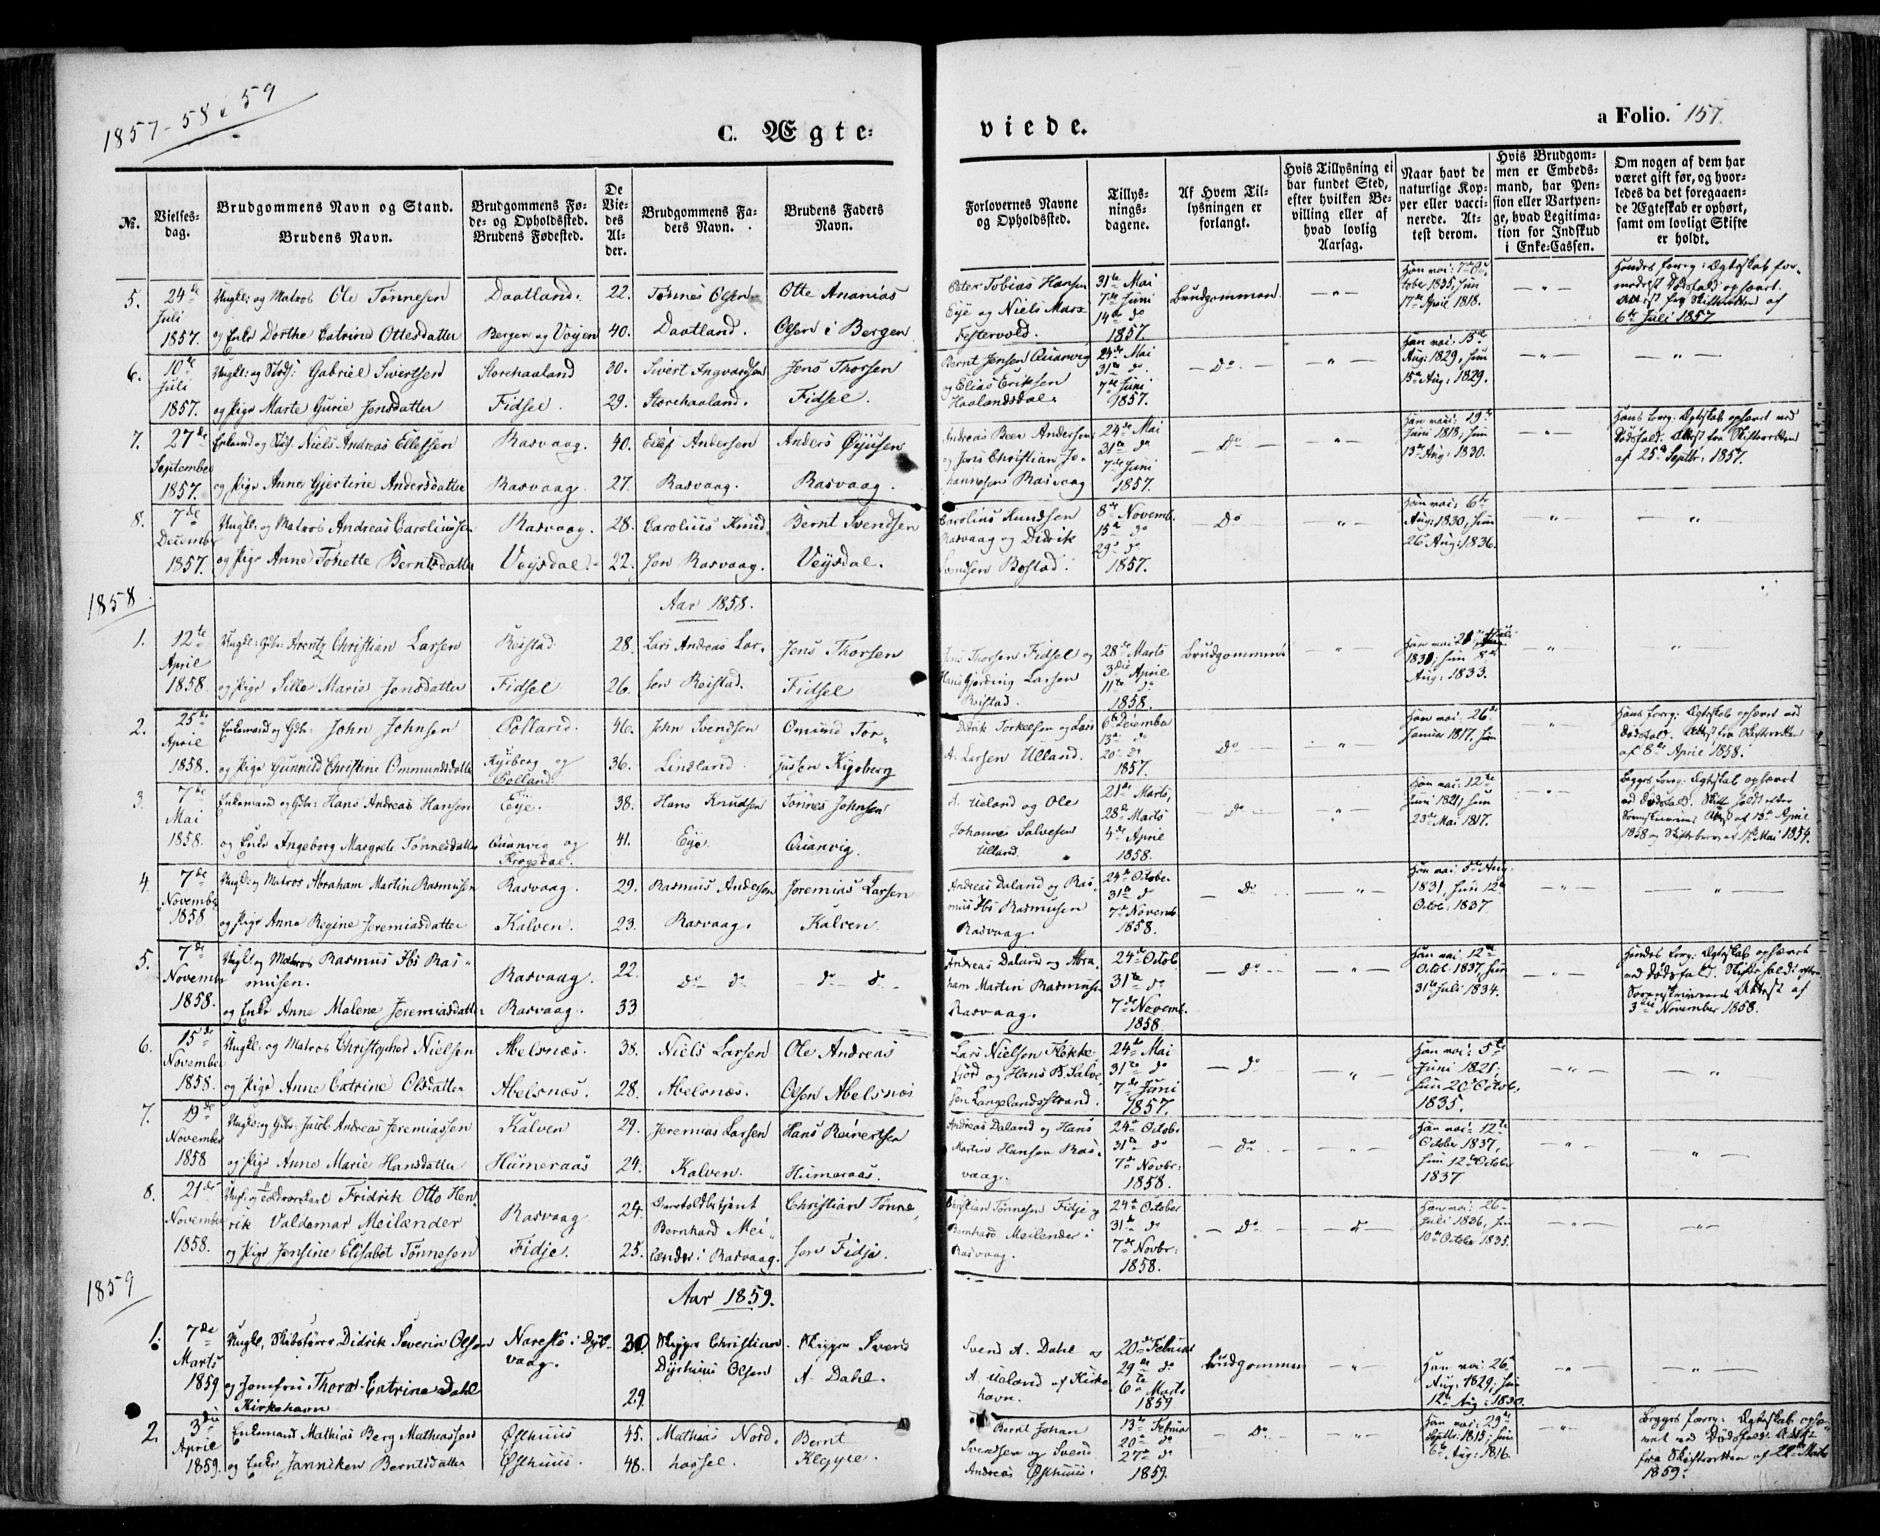 1857-58 & 59
C. Ægte-
viede.
a Folio. 157.
No.
Vielses-
dag.
Brudgommens Navn og Stand.
Brudens Navn.
Brudgommens Fø-
de- og Opholdssted.
Brudens Fødested.
De
Vie-
des
Al-
der.
Brudgommens Fa-
ders Navn.
Brudens Faders
Navn.
Forlovernes Navne
og Opholdssted.
Tillys-
nings-
dagene.
Af Hvem Til-
lysningen er
forlangt.
Hvis Tillysning ei
har fundet Sted,
efter hvilken Be-
villing eller af
hvad lovlig
Aarsag.
Naar havt de
naturlige Kop-
per eller vacci-
nerede. At-
test derom.
Hvis Brudgom-
men er Embeds-
mand, har Pen-
sion eller Vartpen-
ge, hvad Legitima-
tion for Indskud
i Enke-Cassen.
Om nogen af dem har
været gift før, og hvor-
ledes da det foregaaen-
de Ægteskab er ophørt,
samt om lovligt Skifte
er holdt.
5. 24de Juli 1857.
Ungk: og Matros Ole Tønnesen
og Enke Dorthe Catrine Ottesdatter
Daatland.
Bergen og Vøjen
22.
40.
Tønnes Olsen
Daatland.
Otte Ananias
Olsen i Bergen
Peter Tobias Hansen
Eye og Niels Marx
Festervold.
31te Mai
7de Juni
14de do
1857.
Brudgommen
Han vac: 7de Oc-
tober 1835, hun
17de April 1818.
Hendes foreg: Ægteskab for-
medelst Dødsfald ophævet.
Attest fra Skifteretten af
6te Juli 1857
6. 10de Juli 1857.
Ungk: og Gabriel Sivertsen
og Pige Marte Gurie Jensdatter
Storehaaland
Fidsel.
30.
29.
Sivert Ingvardsen
Storehaaland.
Jens Thorsen
Fidsel.
Bernt Jensen Quanvig
og Elias Eriksen
Haalandsdal.
24de Mai
31te do.
7de Juni
1857.
Do
Han vac: 15de
Aug: 1829, hun
15de Aug: 1829.
7. 27de September 1857.
Enkemd og Niels Andreas Ellefsen
og Pige Anne Gjertine Andersdatter
Rasvaag.
Rasvaag.
40.
27.
Ellef Andersen
Rasvaag.
Anders Øyusen
Rasvaag.
Andreas Beer Andersen
og Jens Christian Jo-
hannesen Rasvaag
24de Mai
31te do
7de Juni
1857.
Do
Han vac: 29de
Juni 1818, hun
13de Aug: 1830.
Hans foreg: Ægteskab ophævet ved
Dødsfald. Attest fra Skifteretten
af 25de Septbr: 1857.
8. 7de December 1857.
Ungk. og Matros Andreas Caroliussen
og Pige Anne Tonette Berntsdatter
Rasvaag.
Veisdal
28.
22.
Carolius Knud
sen Rasvaag.
Bernt Svendsen
Veysdal.
Carolius Knudsen
Rasvaag og Didrik
Bøstad.
8de Novemb.
15de do
29de do
1857.
Do
Han vac: 6te
Aug: 1830, hun
26de Aug: 1836.
1858
Aar 1858.
1. 12te April 1858.
Ungk: Gdbr: Arentz Christian Larsen
og Pige Sille Marie Jensdatter
Reistad.
Fidsel
28.
26.
Lars Andreas Lar-
sen Reistad.
Jens Thorsen
Fidsel
Jens Thorsen Fidsel og
Hans Gjerding Larsen
Reistad.
28de Marts
3die April
11te do
1858.
Brudgommen
1831; hun 8de
Aug: 1833.
2. 25de April 1858.
Enkemand og Gdbr: John Johnsen
og Pige Gunnild Christine Ommundsdatter
Rolland.
Kysberg og
Rolland.
46.
36.
John Svendsen
Lindland.
Omund Tor-
jusen Kysberg
Didrik Torkelsen og Lars
A. Larsen Ulland.
6te December
13de do
20de do
1857.
Do
Han vac: 26de
Januar 1817, hun
Hans foreg: Ægteskab ophævet ved
Dødsfald. Attest fra Skifteretten
af 8de April 1858.
3. 7de Mai 1858.
Enkemand og Gdbr: Hans Andreas Hansen
og Enke Ingeborg Margrete Tønnesdatter
Eye.
Quanvig og
Krogsdal.
38.
41.
Hans Knudsen
Eye.
Tønnes Johnsen
Quanvig.
A. Ueland og Ole
Johannes Salvesen
Ulland.
21de Marts,
28de Marts
4de April
1858.
Do
Han vac: 12te
Juni 1821, hun
23de Mai 1817.
Begges foreg: Ægteskab ophævet
ved Dødsfald. Skifte holdt efter
Attest af 13de April
1858 og Skiftebrev af Mai 1854.
4. 7de November 1858
Ungk: og Matros Abraham Martin Rasmusen
og Pige Anne Regine Jeremiasdatter
Rasvaag.
Kalven.
29.
23.
Rasmus Andersen
Rasvaag.
Jeremias Larsen
Kalven.
Andreas Daland og Ras-
mus Ibs Rasmusen
Rasvaag.
24de October
31te do
7de Novemb.
1858.
Do
Han vac: 5de Aug.
1831, hun 12te
Octob: 1837.
5. 7de November 1858.
Ungk: og Matros Rasmus Ibs Ras-
musen.
og Enke Anne Malene Jeremiasdatter
Rasvaag.
Rasvaag.
22.
33
do do
do do
Andreas Daland og Abra-
ham Martin Rasmusen
Rasvaag.
24de Octob.
31te
7de Novemb.
1858.
Do
Han vac: 12te
Octob. 1837, hun
31te Juli 1834.
Hendes foreg: Ægteskab ophævet
ved Dødsfald. Skifte holdt efter
Sorenskriverens Attest af
3die November 1858.
6. 15de November 1858.
Ungk: og Matros Christopher Nielsen
og Pige Anne Catrine Olsdatter
Abelsnæs.
Abelsnæs.
38.
28.
Niels Larsen
Abelsnæs.
Ole Andreas
Olsen Abelsnæs
Lars Nielsen Flekke-
fjord og Hans B. Salve-
sen Langlandsstrand.
24de Mai
31te do
7de Juni
1857.
Do
Han vac: 5te
Juni 1821;
hun 20de Octob.
1835.
7. 19de November 1858
Ungk: og Gdbr: Jacob Andreas Jeremiassen
og Pige Anne Marie Hansdatter
Kalven
Humeraas
29.
24.
Jeremias Larsen
Kalven.
Hans Reinertsen
Humeraas.
Andreas Daland og Hans
Martin Hansen Ras-
vaag.
24de Octobr
31te do
7de Novbr:
1858.
Do
Han vac: 12te
October 1837,
hun 12te October
1837
8. 21de November 1858.
Ungk: og Fridrik Otto Hen-
rik Valdemar Meilænder
og Pige Jensine Elisabet Tønnesen
Rasvaag
Fidje.
24.
25.
Bernhard Mei-
lænder i Rasvaag.
Christian Tønne-
sen Fidje.
Christian Tønnesen Fidje og
Bernhard Meilænder i
Rasvaag.
24de October
31te do
7de Novbr:
1858.
Do
Han vac: 26de
Juli 1836, hun
10de October 1835.
1859
Aar 1859.
1. 7de Marts 1859
Ungk. Skibsfører Didrik Severin Olsen
og Jomfru Thora Catrine Dahl
Kirkehavn
Narestø i Dyb-
vaag.
30.
29.
Skipper Christian
Dyrhuus Olsen
Skipper Svend
A. Dahl.
Svend A. Dahl og
A. Ueland af Kirke-
havn.
20de Februar
29de do
6te Marts
1859
Brudgommen
Han vac: 26de
Aug. 1829; hun
12te Aug: 1830.
2. 3die April 1859.
Enkemand Mathias Berg Mathiassen
og Enke Janniken Berntsdatter
Østhuus
Østhuus.
45.
48.
Mathias Nord-
hassel.
Bernt
Kleppe.
Bernt Johan
Svendsen og Svend
Andreas Østhuus.
13de Februar
20de do
27de do
1859.
Do
Han vac: 29de
Septbr: 1815; hun
6te Aug: 1816.
Begges foreg: Ægteskab ophæ-
vet ved Dødsfald. Attest
fra Skifteretten af Marts
1859.